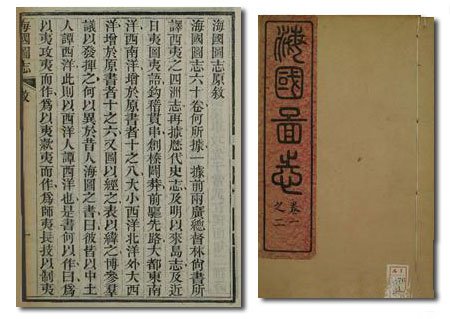 海國圖志
卷一
之二
海國圖志原敘
海國圖志六十卷何所據一據前兩廣總督林尚書所
譯西夷之四洲志再據歷代史志及明以來島志及近
日夷圖夷語鉤稽貫串創榛闢莽前驅先路大都東南
洋西南洋增於原書者十之八大小西洋北洋外大西
洋增於原書者十之六又圖以經之表以緯之博參羣
議以發揮之何以異於昔人海圖之書曰彼皆以中土
人譚西洋此則以西洋人譚西洋也是書何以作曰爲
以夷攻夷而作爲以夷款夷而作爲師夷長技以制夷
海國圖志 敘 一